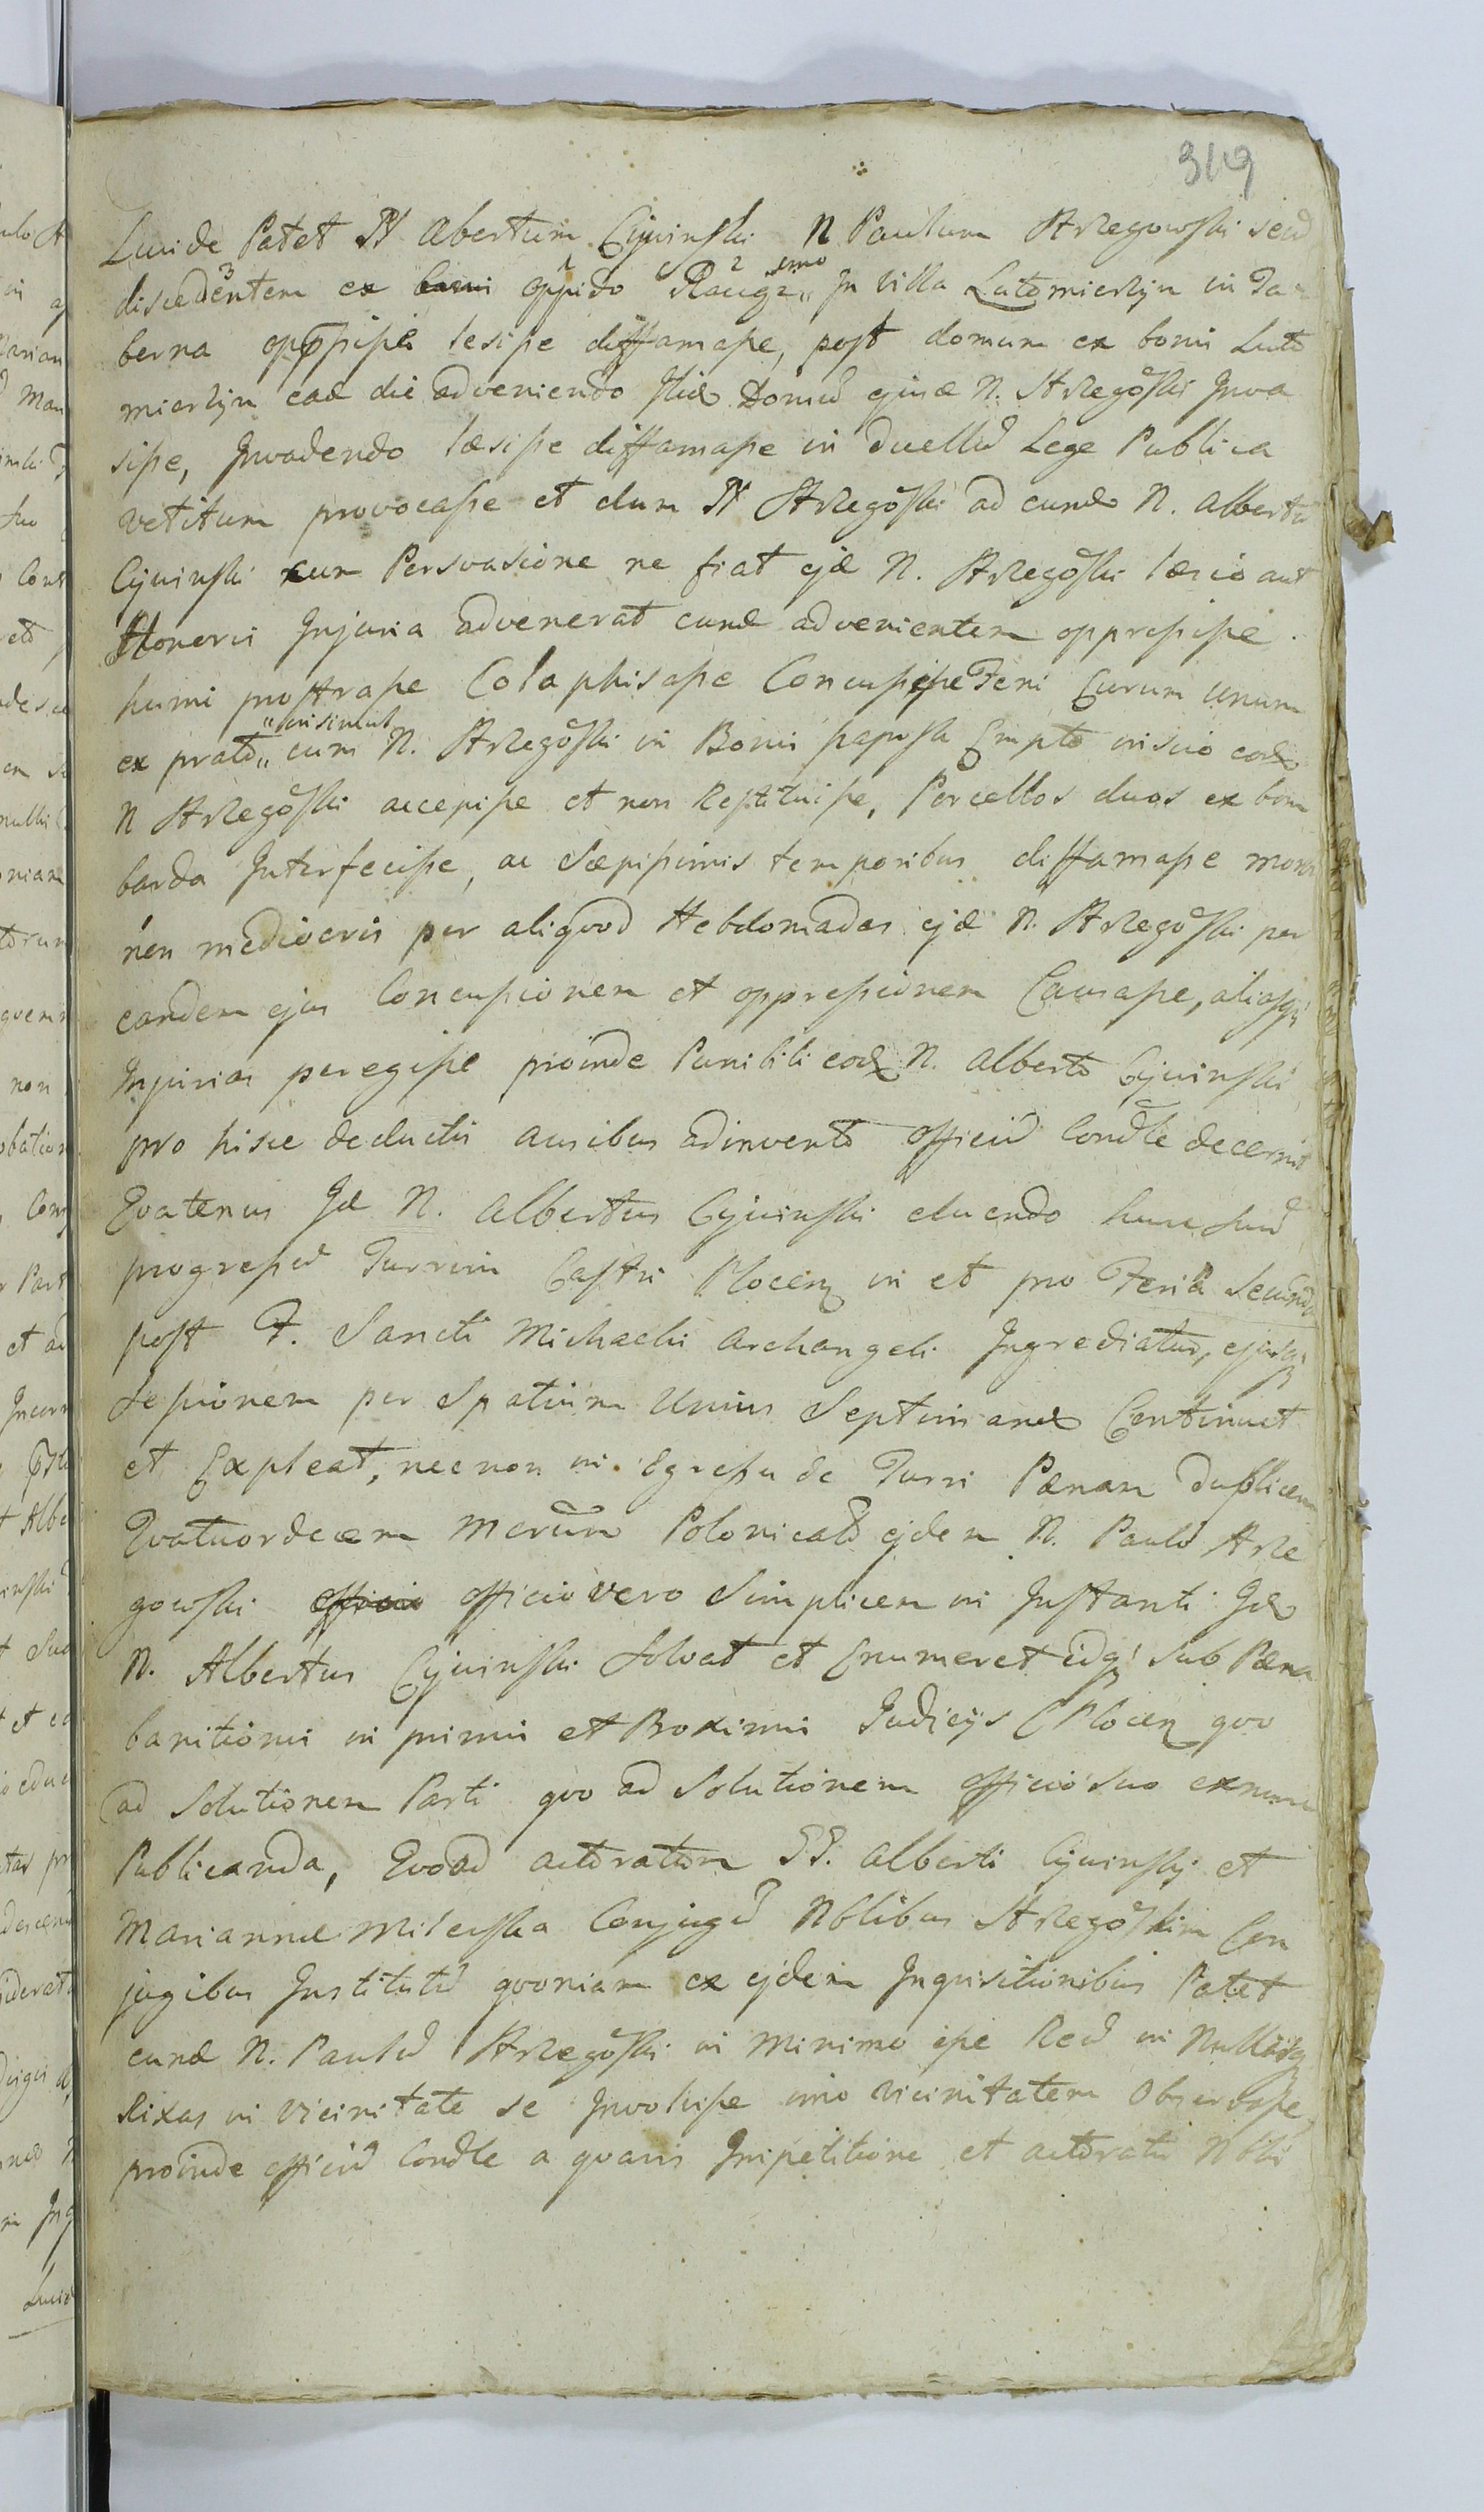 319
Lucide Patet N Albertum Cywinski N Paulum Strzegowski seu
discedentem ex oppido Raciąż In villa Lutomierzyn in Ta
berna oppssisse lesisse diffamasse, post domum ex bonis Luto
mierzyn ead die adveniendo Domū ejusd N. Strzegoski Inva
sisse, Invadendo læsisse diffamasse in duellū Lege Publica
vetitum provocasse et dum N Strzegoski ad eund N. Albertū
Cywinski cum Persvasione ne fiat ejd N. Strzegoski læsio aut
Honoris Injuria advenerat eund advenientem oppressisse
humi prostrasse Colaphisasse Concussisse Feni Currum unum
ex prato „insimul„ cum N. Strzegoski in Bonis Empto inscio eod
N Strzegoski accepisse et non Restituisse, Porcellos duos ex bom
barda Interfecisse, ac Sæpissimis temporibus diffamasse
non mediocris per aliquod Hebdomadas ejd N. Strzegoski per
eandem ejus Concussionem et oppressionem Causasse, aliasq
Injurias peregisse proinde Punibili eod N. Alberto Cywinski
pro hisce deductis ausibus adinvento officiū Condle decernit
Qvatenus Id N. Albertus Cywinski luendo hunc suū
progressū Turrim Castri Plocen in et pro Feria Secunda
post F. Sancti Michaelis Archangeli Ingrediatur, ejusq
Sessionem per Spatium Unius Septimanæ Continuet
et Expleat, necnon in Egressu de Turri Pænam duplicem
Qvatuordecem Marcarū Polonicalū ejdem N. Paulo Strze
gowski officio vero Simplicem in Instanti Id
N. Albertus Cywinski Solvat et Enumeret idq sub Pæna
banitionis in primis et Proximis Judicijs C Plocen qvo
ad Solutionem Parti qvo ad Solutionem officio suo ex nunc
Publicanda, Qvoad actoratum GG. Alberti Cywinskj et
Mariannæ Milewska Conjugū Nobilibus Strzegoskim Con
jugibus Institutū qvoniam ex ejdem Inquisitionibus Patet
eund N. Paulū Strzegoski in Minimo esse Reū in Nullasq
Rixas in vicinitate se Involvisse imo vicinitatem Observasse,
proinde officiū Condle a qvavis Impetitione et actoratu Nobili